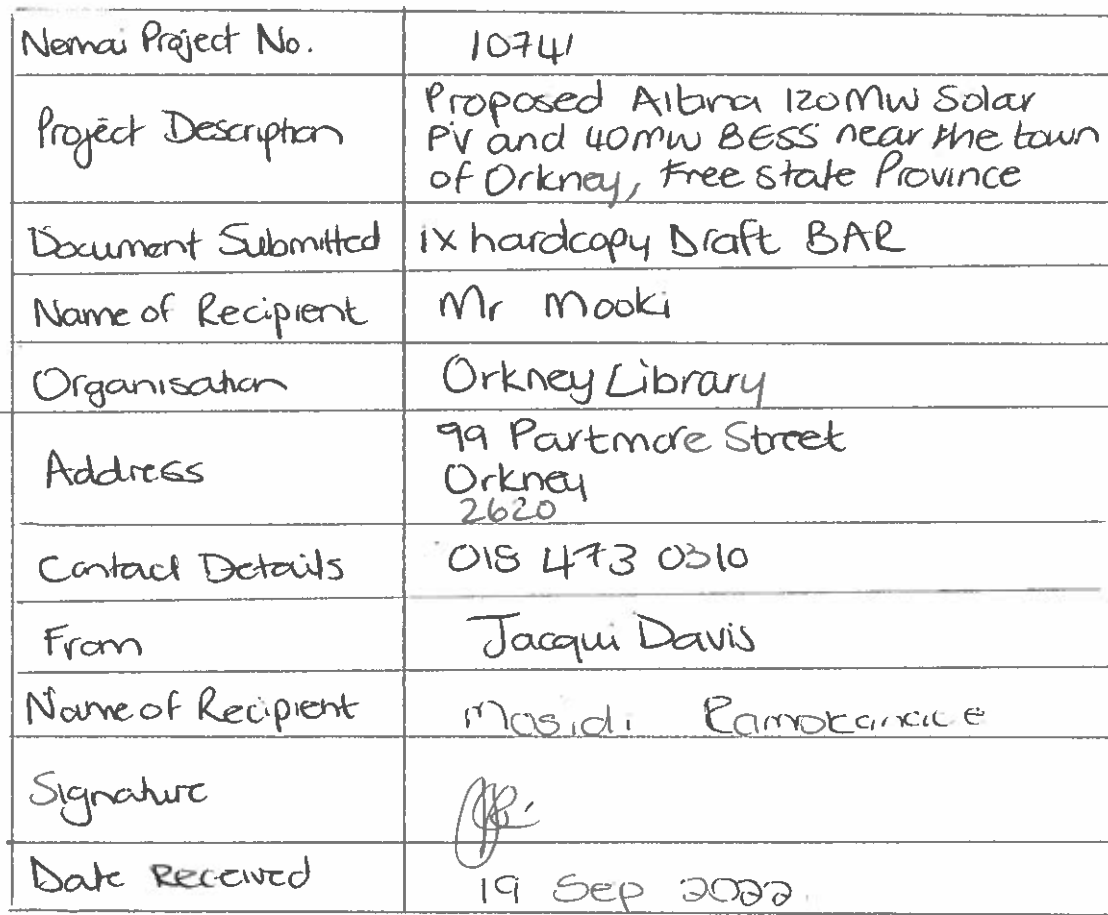 Nemai Project No. 10741
Project Description Proposed Albina 120MW Solar
PV and 40MW BESS near the town
of Orkney, Free State Province
Document Submitted 1x hardcopy Draft BAR
Name of Recipient Mr Mooki
Organisation Orkney Library
Address 99 Partmore Street
Orkney
2620
Contact Details 018 473 0310
From Jacqui Davis
Name of Recipient Masidi
Signature
Date Received 19 Sep 2022